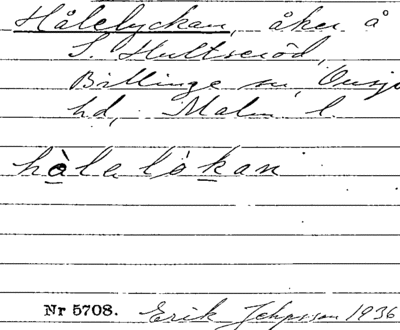 Hålelyckan, åker å
S. Hultseröd,
Billinge sn, Onsjö
hd, Malm l.
hàlalỳkan
Nr 5708. Erik Jeppsson 1936